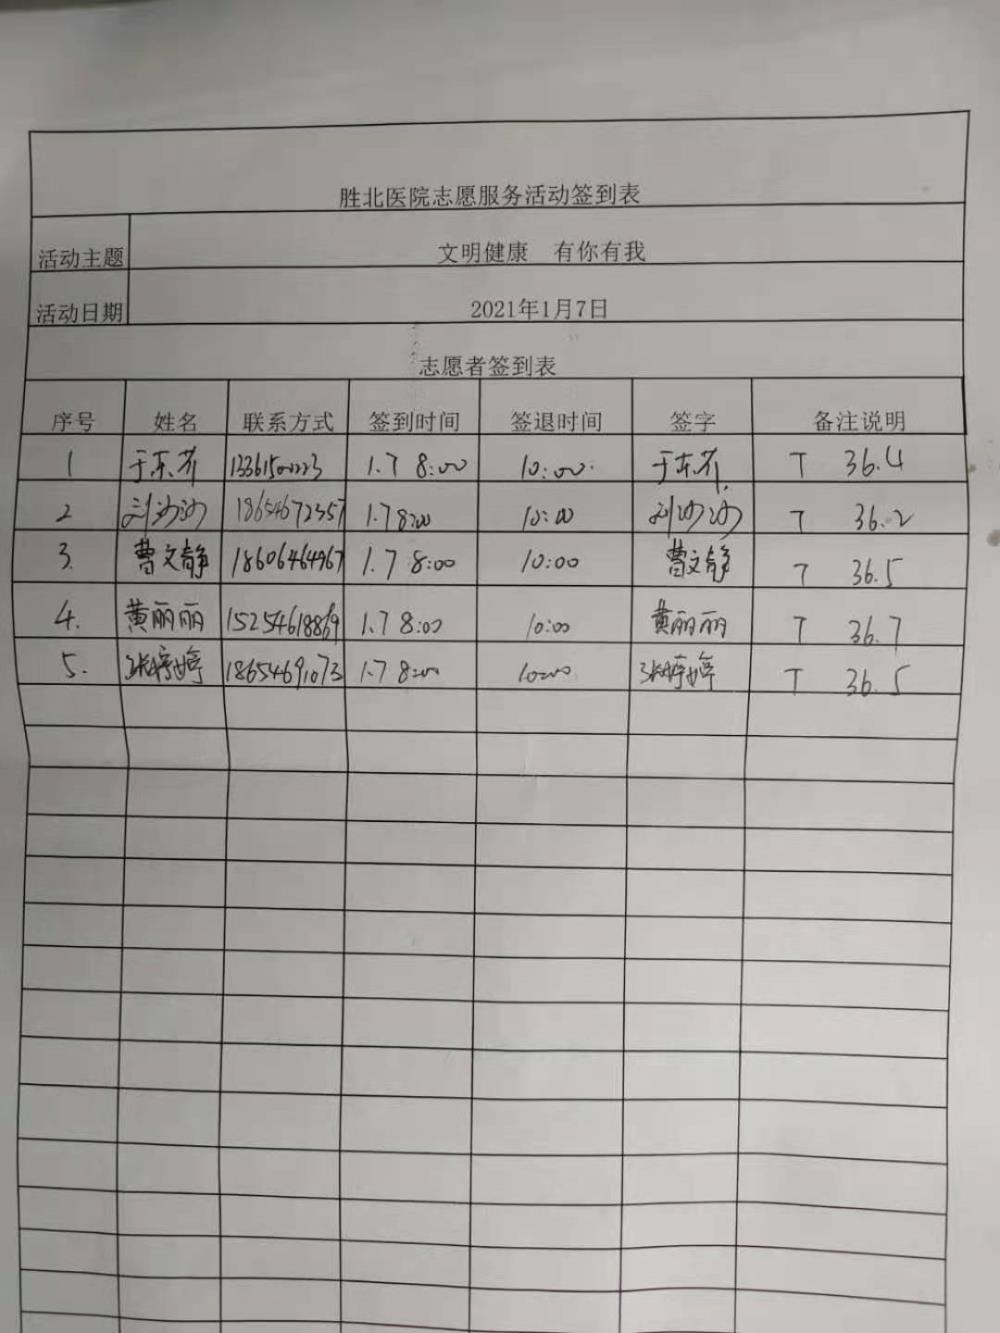 胜北医院志愿服务活动签到表
活动主题 文明健康 有你有我
活动日期 2021年1月7日
志愿者签到表
序号 姓名 联系方式 签到时间 签退时间 签字 备注说明
1 于东芥 13361500223 1.7 8:00 10:00 于东芥 T 36.4
2 刘沙沙 18654672357 1.7 8:00 10:00 刘沙沙 T 36.2
3. 曹文静 18606464967 1.7 8:00 10:00 曹文静 T 36.5
4. 黄丽丽 15254618869 1.7 8:00 10:00 黄丽丽 T 36.7
5. 张婷婷 18654691073 1.7 8:00 10:00 张婷婷 T 36.5